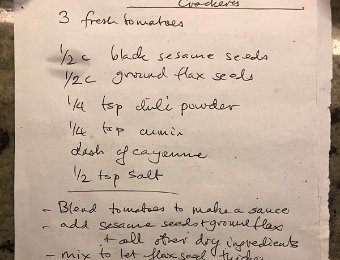 Crackers
3 fresh tomatoes
1/2 c black sesame seeds
1/2 c ground flax seeds
1/4 tsp chili powder
1/4 tsp cumin
dash of cayenne
1/2 tsp salt
- Blend tomatoes to make a sauce
- add sesame seeds + ground flax
+ all other dry ingredients
- mix to let flax seed thicken